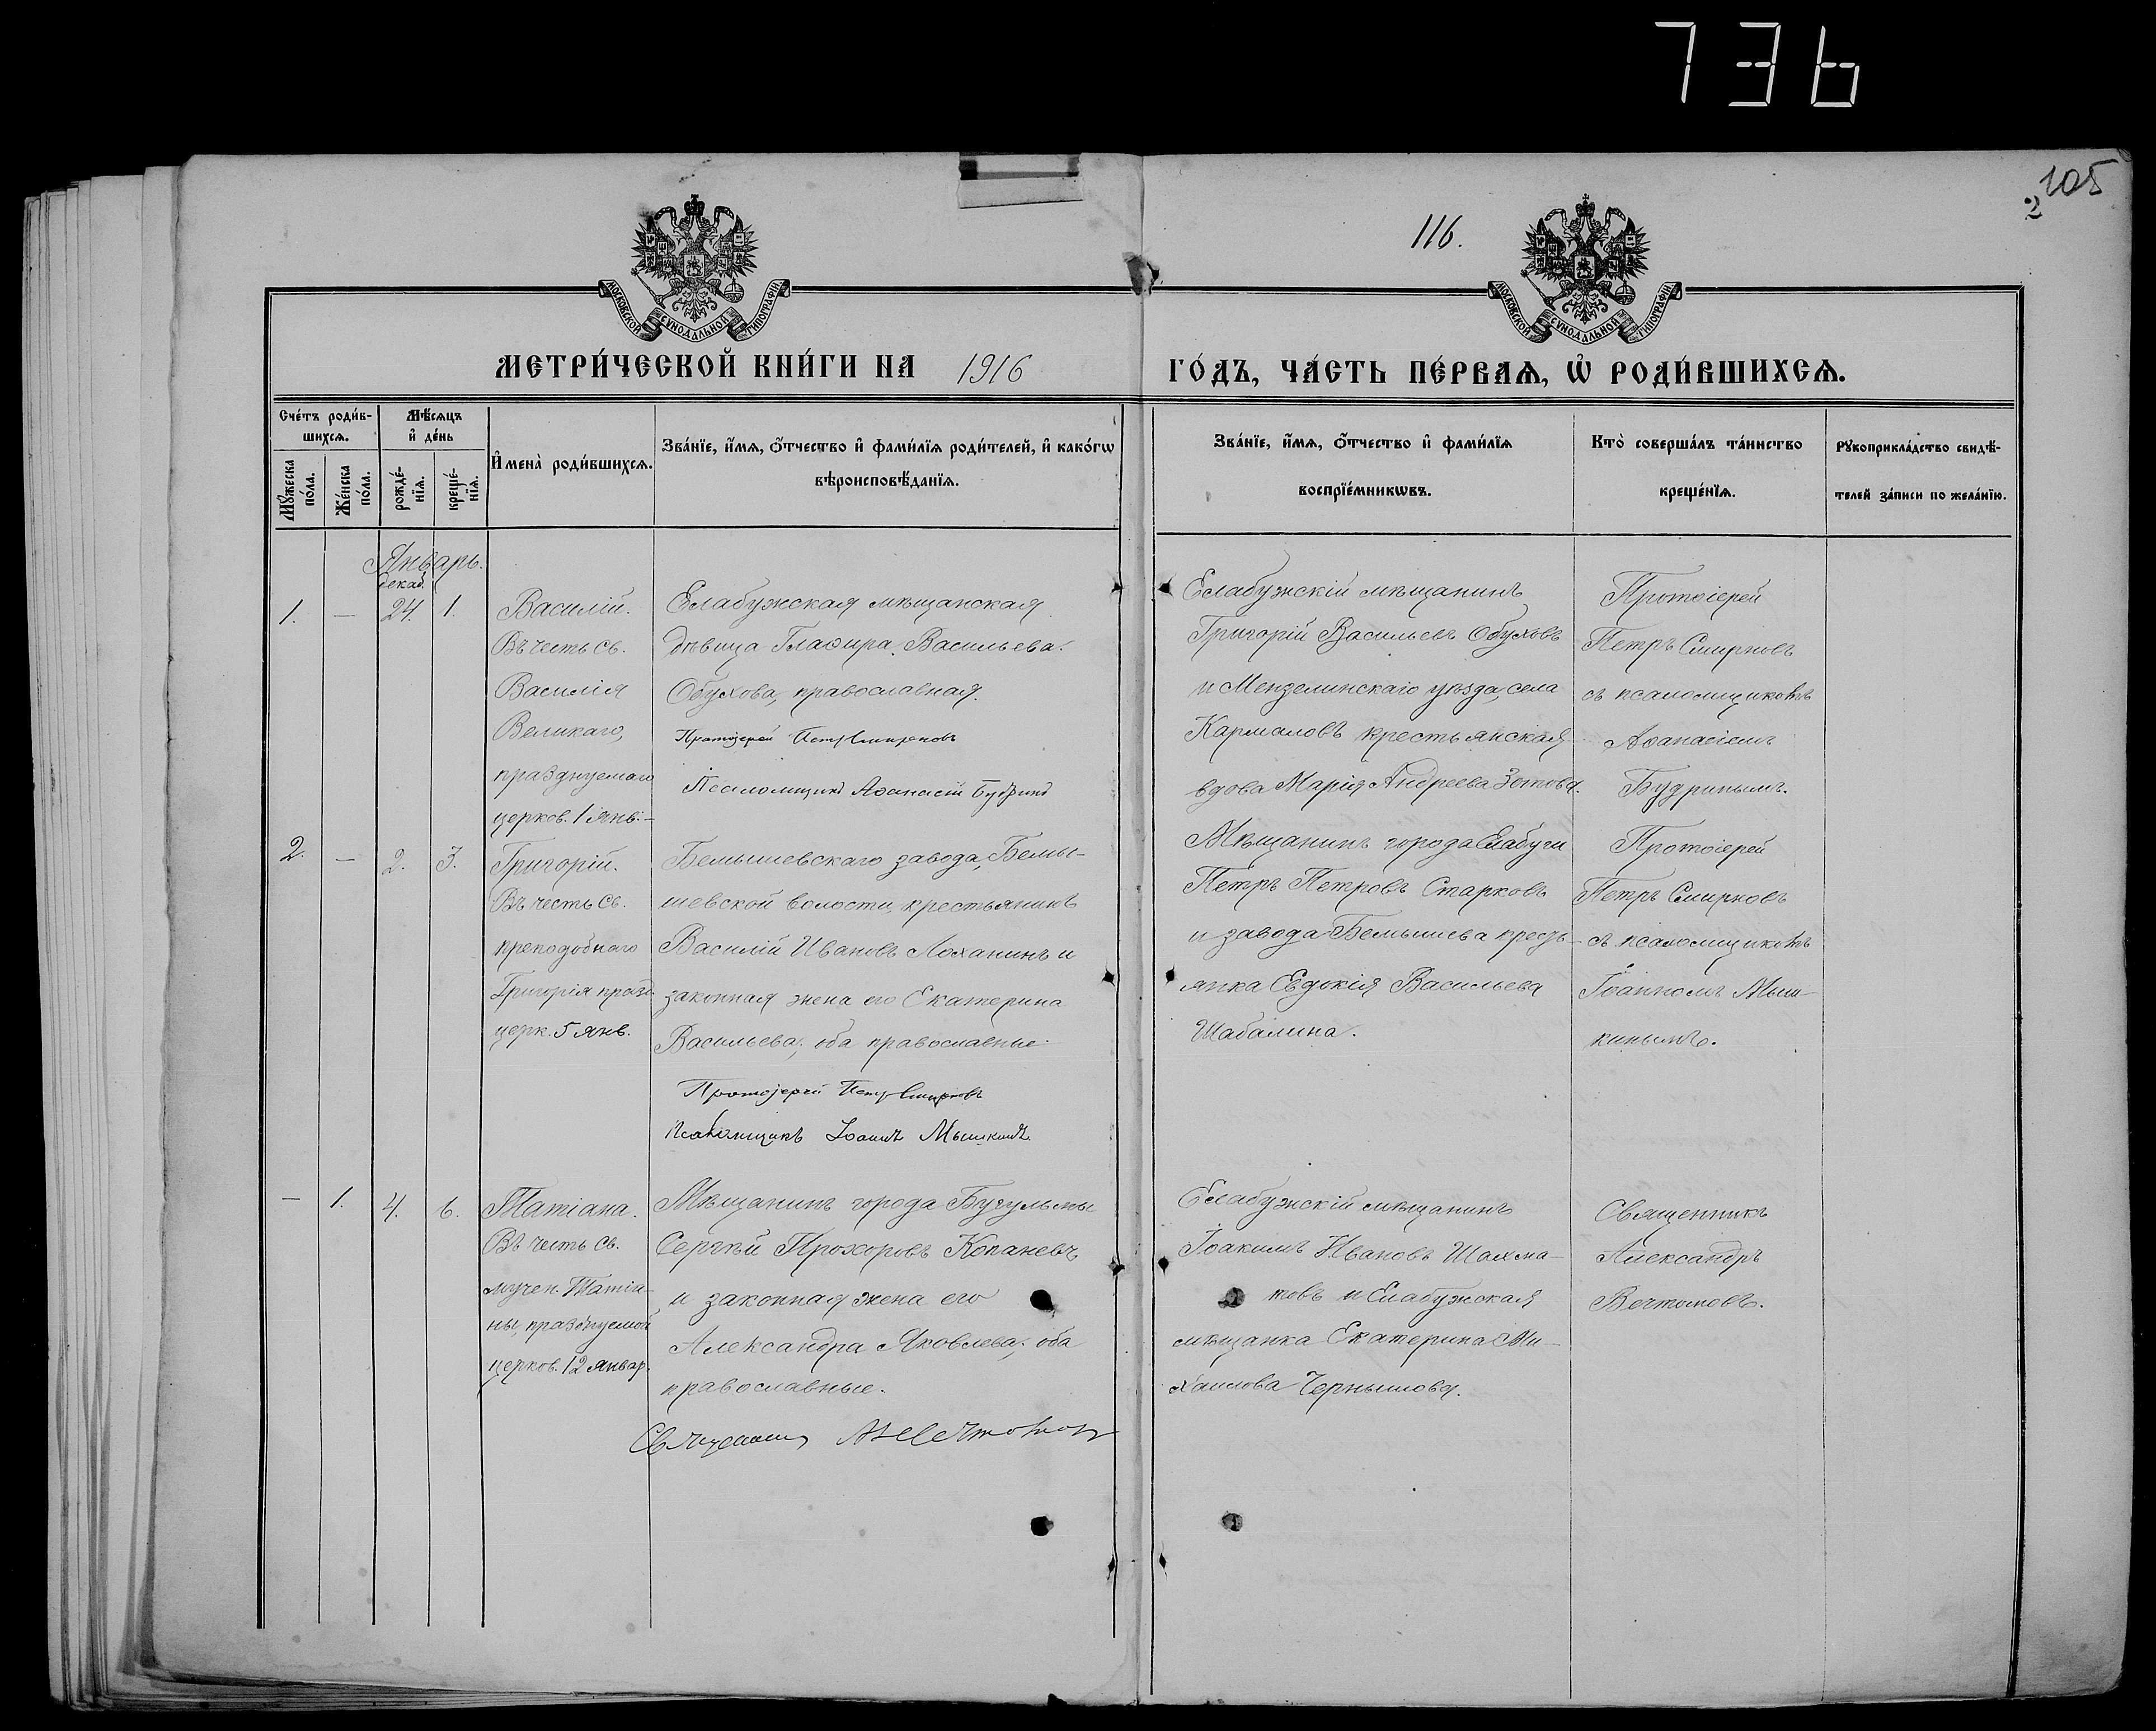 736
105
2
116.
МОСКОВСКОЙ СѴНОДАЛЬНОЙ ТИПОГРАФІИ
МОСКОВСКОЙ СѴНОДАЛЬНОЙ ТИПОГРАФІИ
МЕТРИ́ЧЕСКОЙ КНИ́ГИ НА 1916 ГО́ДЪ, ЧА́СТЬ ПЕ́РВАѦ, Ѡ҆ РОДИ́ВШИХСѦ.
Сче́тъ роди́в-
шихсѧ.
Мꙋ́жеска
по́ла.
Же́нска
по́ла.
Мѣ́сѧцъ
и҆ де́нь
рожде́-
нїѧ.
креще́-
нїѧ.
И҆мена̀ роди́вшихсѧ.
Зва́нїе, и҆́мѧ, ѻ҆́тчество и҆ фами́лїѧ роди́телей, и҆ како́гѡ
вѣроисповѣ́данїѧ.
Зва́нїе, и҆́мѧ, ѻ҆́тчество и҆ фами́лїѧ
воспрїе́мникѡвъ.
Кто̀ соверша́лъ та́инство
креще́нїѧ.
Рꙋкоприкла́дство свидѣ́-
телей за́писи по жела́нїю.
Январь.
декаб.
1. — 24. 1.
Василій.
Въ честь св.
Василія
Великаго,
празднуемаго
церков. 1 янв.—
Елабужская мѣщанская
дѣвица Глафира Васильева
Обухова, православная.
Протоіерей Петръ Смирновъ
Псаломщикъ Аѳанасій Будринъ
Елабужскій мѣщанинъ
Григорій Васильевъ Обуховъ
и Мензелинскаго уѣзда, села
Кармаловъ крестьянская
вдова Марія Андреева Зотова.
Протоіерей
Петръ Смирновъ
съ псаломщикомъ
Аѳанасіемъ
Будринымъ.
2. — 2. 3.
Григорій.
Въ честь св.
преподобнаго
Григорія празд.
церк. 5 янв.
Бемышевскаго завода, Бемы-
шевской волости, крестьянинъ
Василій Ивановъ Лоханинъ и
законная жена его Екатерина
Васильева; оба православные.
Протоіерей Петръ Смирновъ
Псаломщикъ Іоаннъ Мышкинъ.
Мѣщанинъ города Елабуги
Петръ Петровъ Старковъ
и завода Бемышева кресть-
янка Евдокія Васильева
Шабалина.
Протоіерей
Петръ Смирновъ
съ псаломщикомъ
Іоанномъ Мыш-
кинымъ.
— 1. 4. 6.
Татіана.
Въ честь св.
мучен. Татіа-
ны, празднуемой
церков. 12 январ.
Мѣщанинъ города Бугульмы
Сергѣй Прохоровъ Копаневъ
и законная жена его
Александра Яковлева; оба
православные.
Священникъ А. Вечтомовъ
Елабужскій мѣщанинъ
Іоакимъ Ивановъ Шахма-
товъ и Елабужская
мѣщанка Екатерина Ми-
хаилова Чернышова.
Священникъ
Александръ
Вечтомовъ.